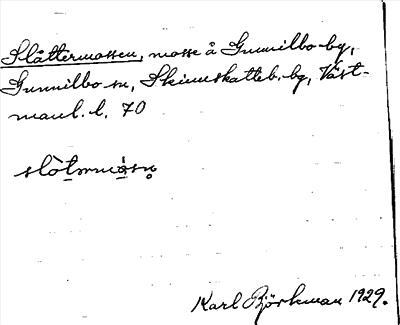 Slåttermossen, mosse å Gunnilbo-bg,
Gunnilbo sn, Skinnskatteb. bg, Väst-
manl. l. 70
Karl Björkman 1929.